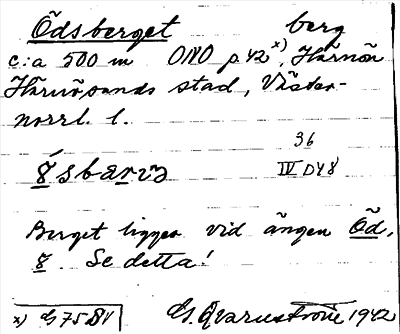 Ödsberget berg
c:a 500 m ONO p. 42 x), Härnön
Härnösands stad, Väster-
norrl. l.
36
IV D48
Berget ligger vid ängen Öd,
8. Se detta!
x) G 75 DV G. Qvarnström 1942